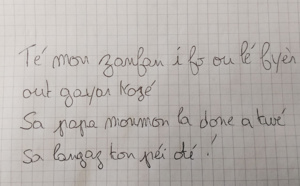 Té mon zanfan i fo ou lé byèn
out gayar kozé
Sa papa momon la done a twé
Sa langaz ton péi oté !